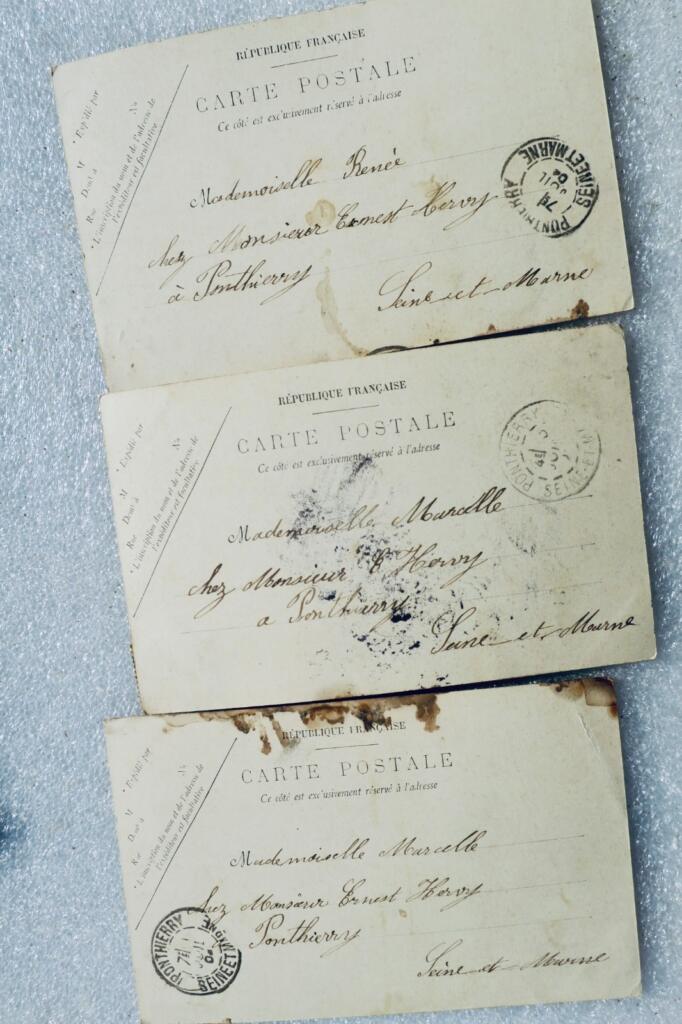 RÉPUBLIQUE FRANÇAISE
CARTE POSTALE
Ce côté est exclusivement réservé à l'adresse
Expédié par
M No
Demt à
Rue
L'inscription du nom et de l'adresse de
l'expéditeur est facultative
Mademoiselle Renée
chez Monsieur Ernest Hervy
à Ponthierry
Seine-et-Marne
PONTHIERRY
7E
JUIL
04
SEINE ET MARNE
RÉPUBLIQUE FRANÇAISE
CARTE POSTALE
Ce côté est exclusivement réservé à l'adresse
Expédié par
M No
Demt à
Rue
L'inscription du nom et de l'adresse de
l'expéditeur est facultative
Mademoiselle Marcelle
chez Monsieur E Hervy
a Ponthierry
Seine-et-Marne
PONTHIERRY
SEINE-ET-M
RÉPUBLIQUE FRANÇAISE
CARTE POSTALE
Ce côté est exclusivement réservé à l'adresse
Expédié par
M No
Demt à
Rue
L'inscription du nom et de l'adresse de
l'expéditeur est facultative
Mademoiselle Marcelle
chez Monsieur Ernest Hervy
Ponthierry
Seine-et-Marne
PONTHIERRY
7E
JUIL
04
SEINE ET MARNE